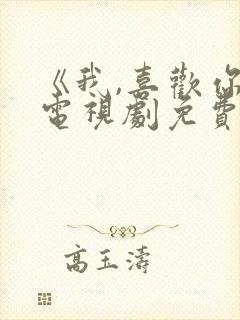 《我,喜歡你
電視劇免費
高玉濤